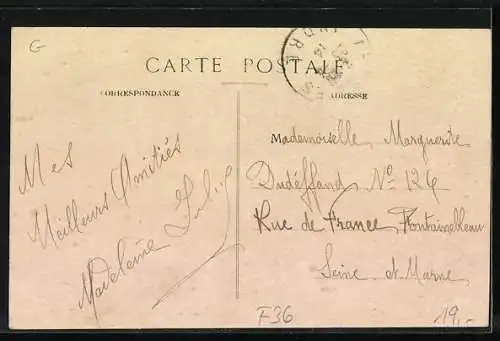 G
CARTE POSTALE
CORRESPONDANCE
ADRESSE
INDRE
14
Mes
Meilleurs Amitiés
Madeleine
Mademoiselle Marguerite
Dudéffand No 126
Rue de France Fontainebleau
Seine et Marne
F36
19,-